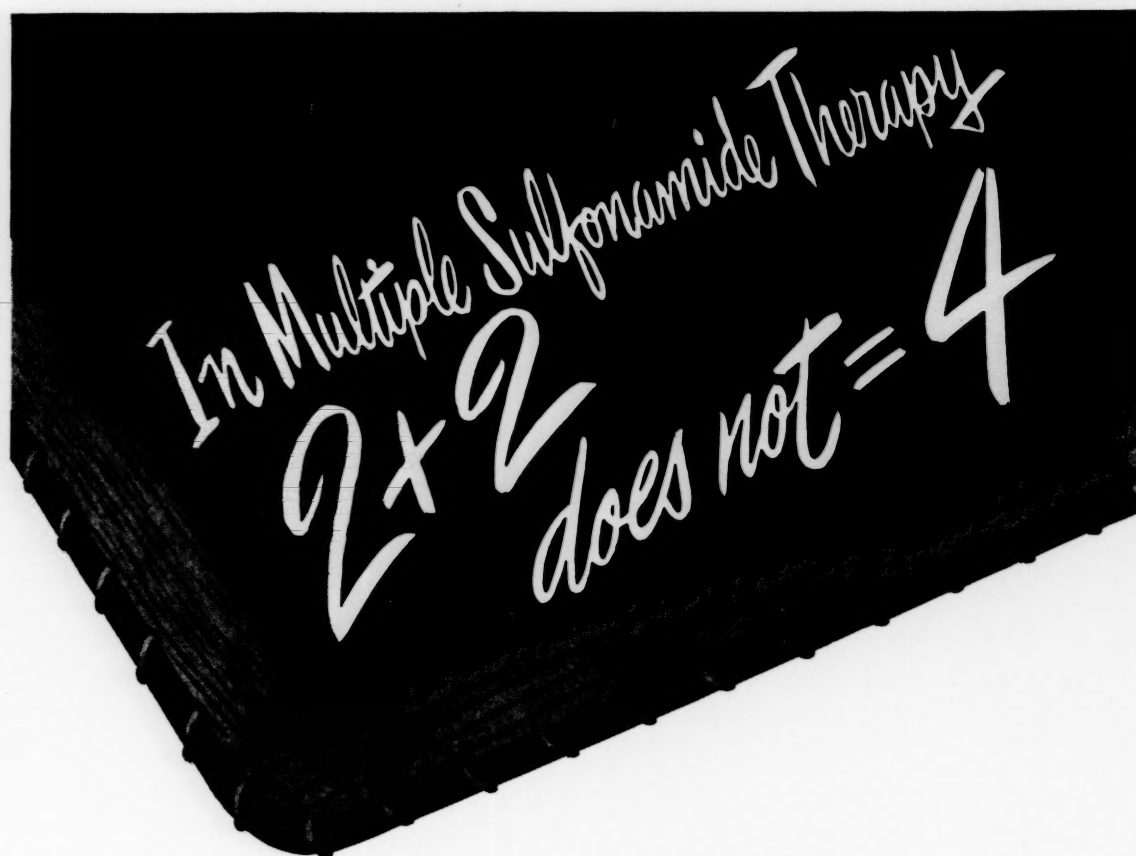 In Multiple Sulfonamide Therapy
2 x 2
does not = 4